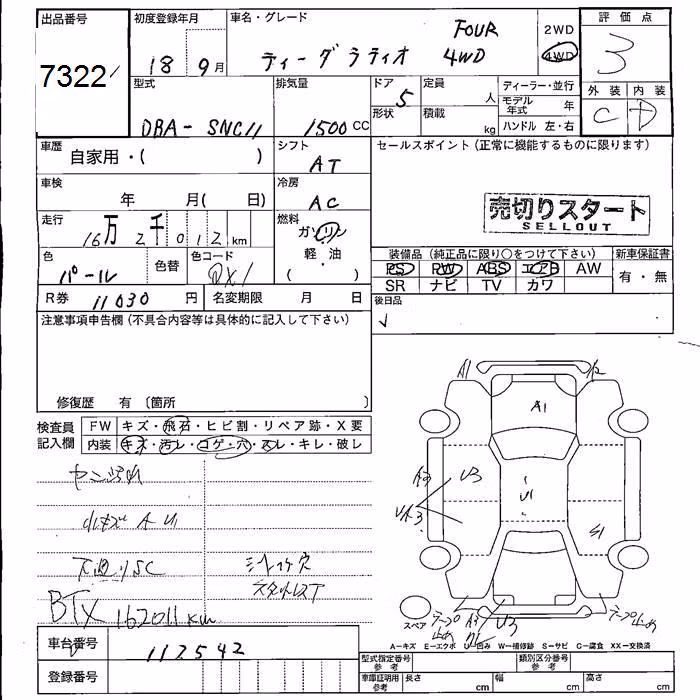 出品番号 初度登録年月 車名・グレード 評価点
7322
18 9月 ティーダラティオ FOUR 4WD 2WD 4WD 3
型式 排気量 ドア 5 定員 人 ディーラー・並行 外装 内装
形状 積載 kg モデル年式 年 C D
DBA-SNC11 1500cc ハンドル 左・右
車歴 自家用・( ) シフト AT セールスポイント(正常に機能するものに限ります)
車検 年 月( 日) 冷房 AC
売切りスタート
SELLOUT
走行 16万2千012km 燃料 ガソリン
軽・油
( )
色 パール 色替 色コード QX1
装備品(純正品に限り○をつけて下さい) 新車保証書
PS PW ABS エアB AW 有・無
SR ナビ TV カワ
R券 11030円 名変期限 月 日 後日品
注意事項申告欄(不具合内容等は具体的に記入して下さい)
修復歴 有 〔箇所 〕
検査員記入欄 FW キズ・飛石・ヒビ割・リペア跡・X要
内装 キズ・汚レ・コゲ・穴・スレ・キレ・破レ
A1 A2
A1
A3 U3 U1
UA3 S1
小キズ A U
下廻りSC シートコゲ穴
スタットレス
BTX 162011km
スペア テープ止め A3 U3 テープ止め
A=キズ E=エクボ U=凹み W=補修跡 S=サビ C=腐食 XX=交換済
車台番号 112542
登録番号
型式指定番号 参考 類別区分番号 参考
車庫証明用 参考 長さ cm 幅 cm 高さ cm